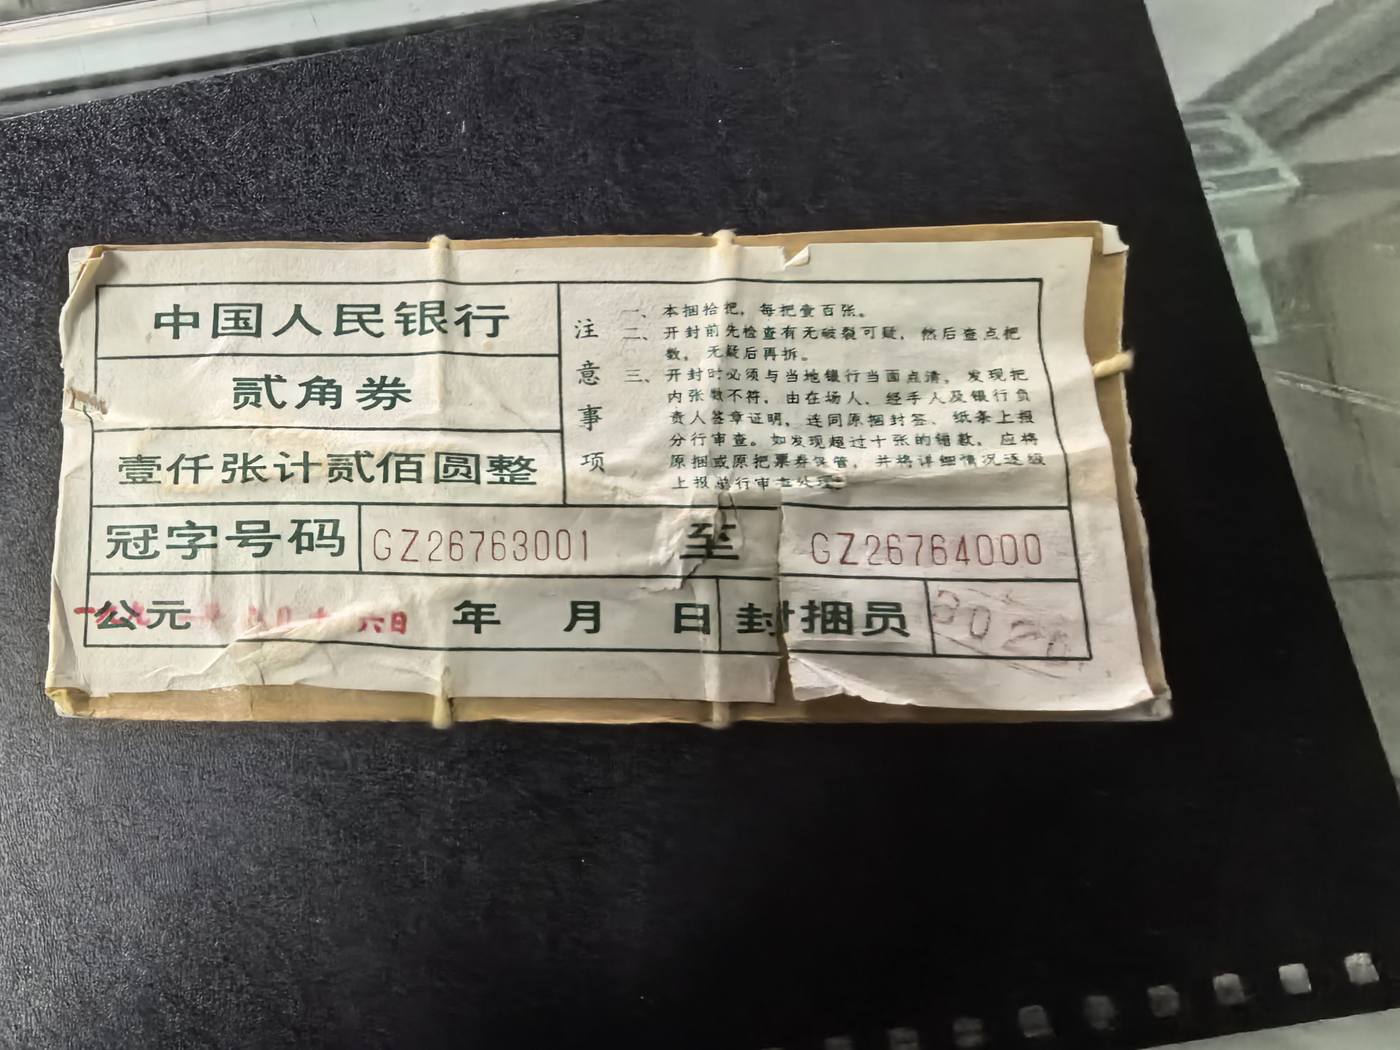 中国人民银行
贰角券
壹仟张计贰佰圆整
注意事项
一、本捆拾把，每把壹百张。
二、开封前先检查有无破裂可疑，然后查点把
数，无疑后再拆。
三、开封时必须与当地银行当面点清，发现把
内张数不符，由在场人、经手人及银行负
责人签章证明，连同原捆封签、纸条上报
分行审查。如发现超过十张的错款，应将
原捆或原把票券保管，并将详细情况逐级
上报总行审查处理。
冠字号码 GZ26763001 至 GZ26764000
公元 年 月 日 封捆员
六日